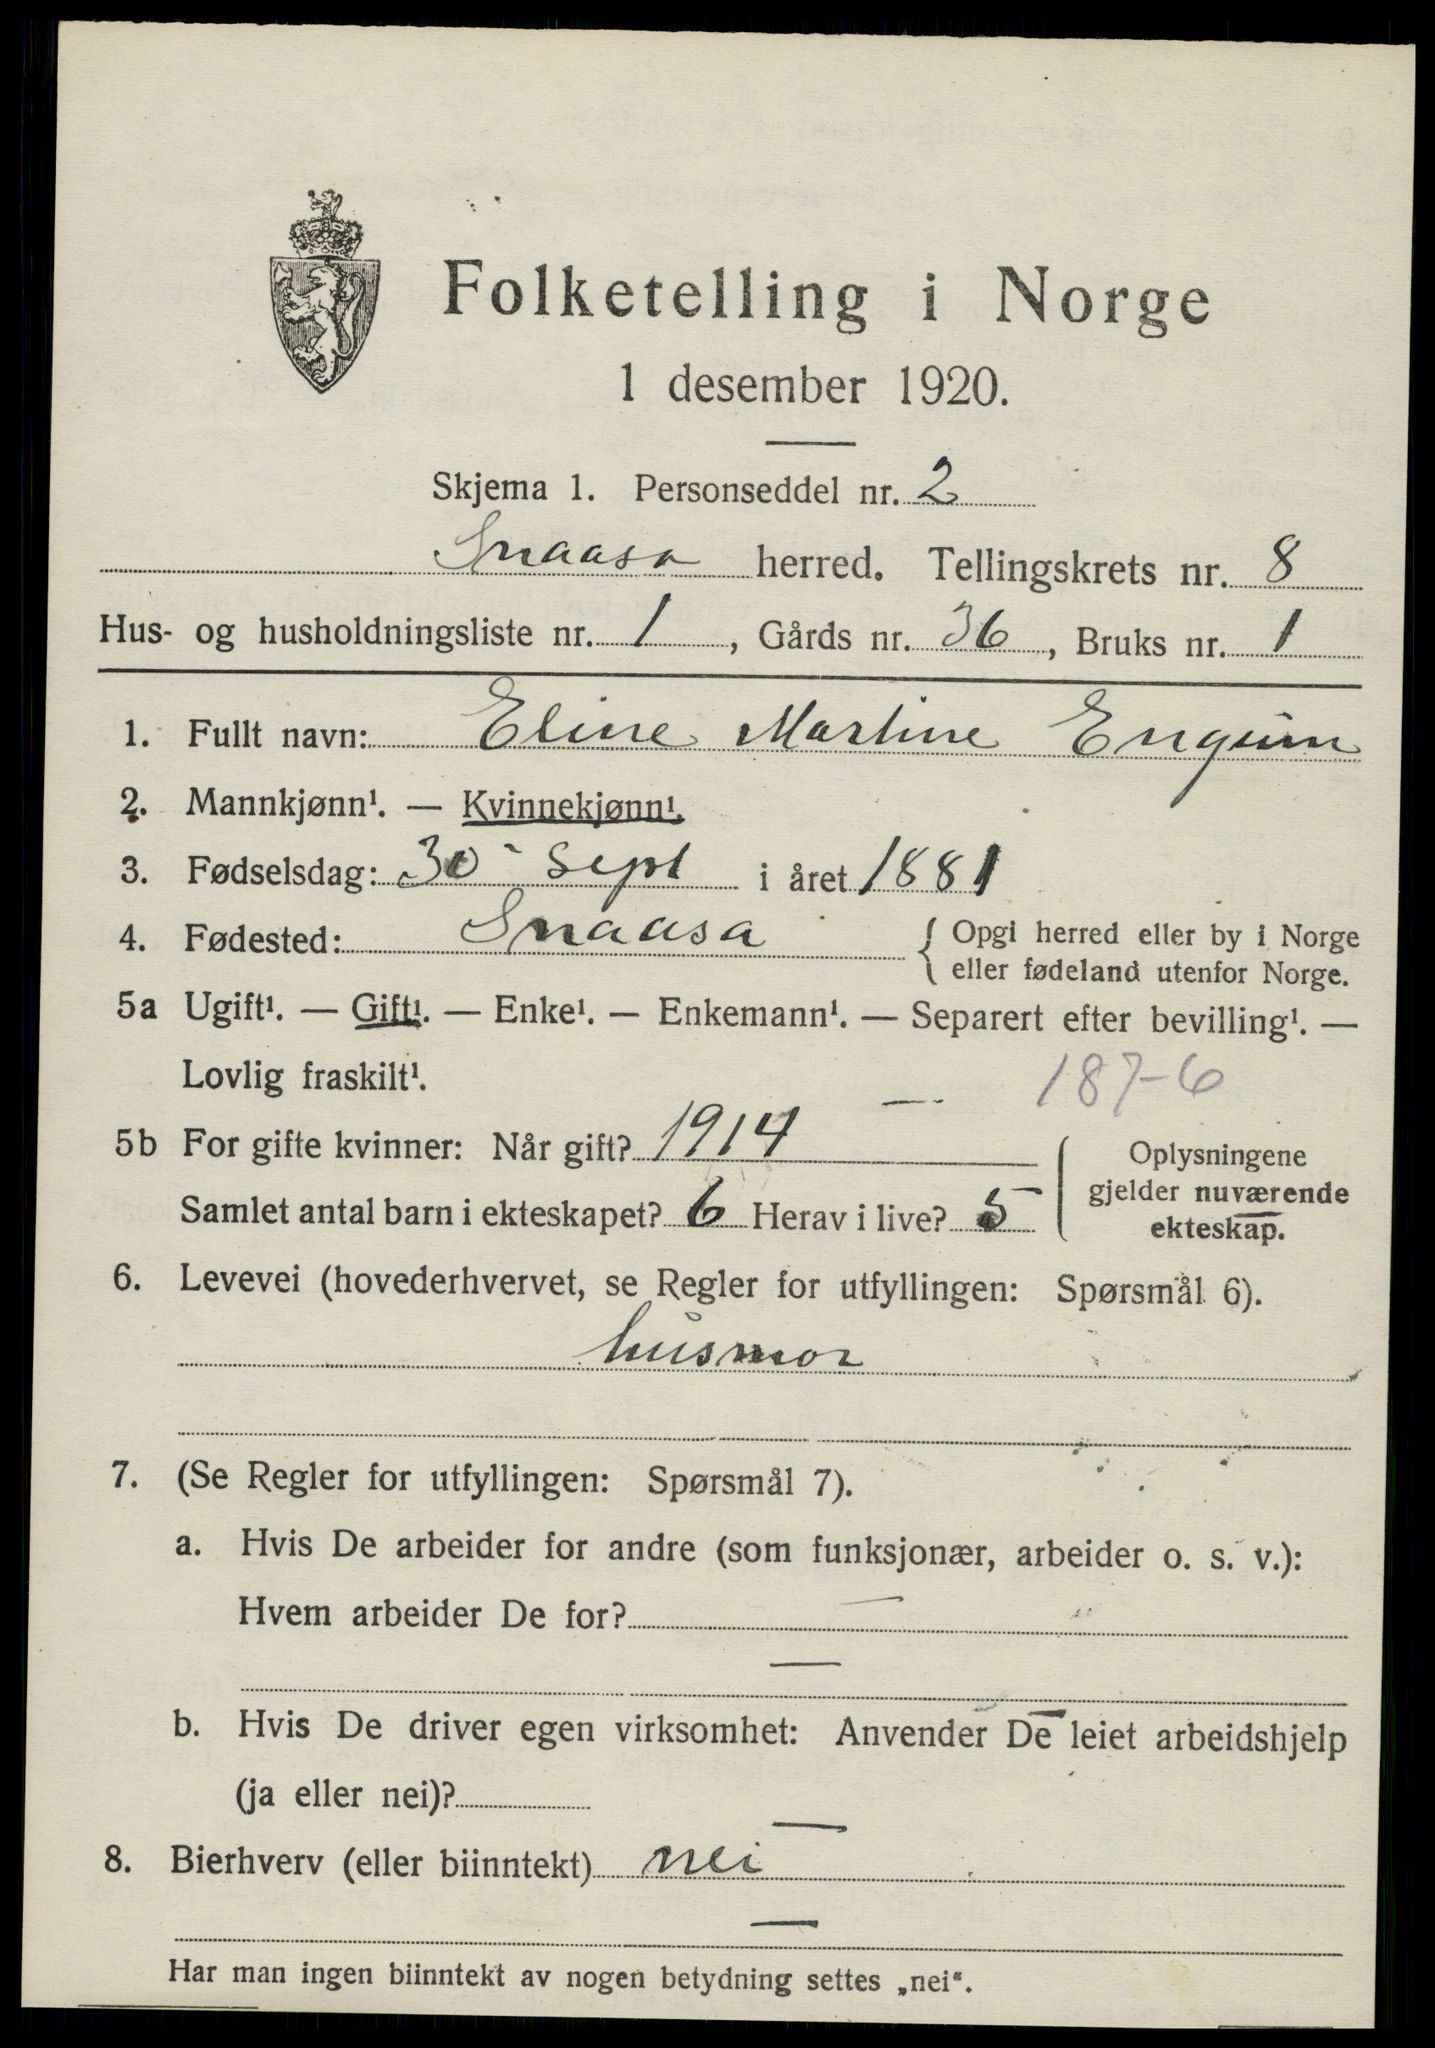 Folketelling i Norge
1 desember 1920.
Skjema 1. Personseddel nr. 2
Snaasa herred. Tellingskrets nr. 8
Hus- og husholdningsliste nr. 1, Gårds nr. 36, Bruks nr. 1
1. Fullt navn: Eline Martine Engum
2. Mannkjønn¹. — Kvinnekjønn¹.
3. Fødselsdag: 30 Sept i året 1881
4. Fødested: Snaasa { Opgi herred eller by i Norge
eller fødeland utenfor Norge.
5a Ugift¹. — Gift¹. — Enke¹. — Enkemann¹. — Separert efter bevilling¹. —
Lovlig fraskilt¹.
187-6
5b For gifte kvinner: Når gift? 1914
Samlet antal barn i ekteskapet? 6 Herav i live? 5
Oplysningene
gjelder nuværende
ekteskap.
6. Levevei (hovederhvervet, se Regler for utfyllingen: Spørsmål 6).
husmor
7. (Se Regler for utfyllingen: Spørsmål 7).
a. Hvis De arbeider for andre (som funksjonær, arbeider o. s. v.):
Hvem arbeider De for? —
—
b. Hvis De driver egen virksomhet: Anvender De leiet arbeidshjelp
(ja eller nei)?
—
8. Bierhverv (eller biinntekt) nei
—
Har man ingen biinntekt av nogen betydning settes „nei“.